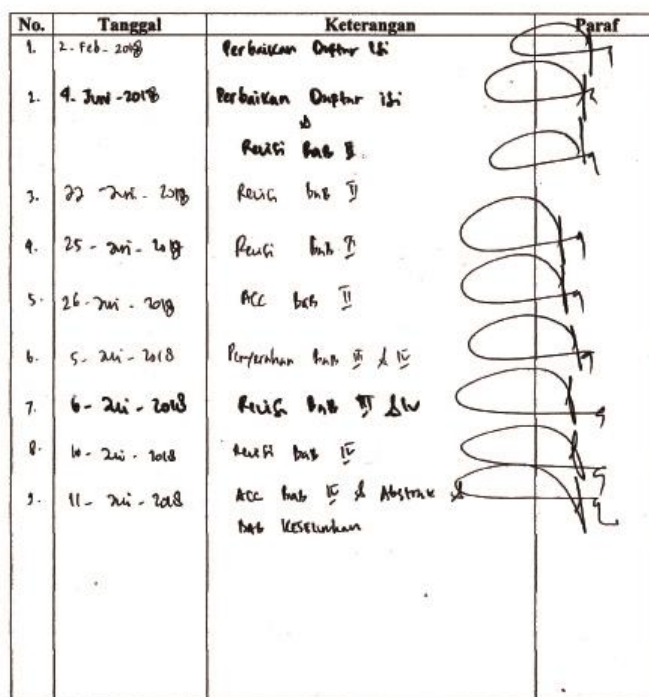 No. Tanggal Keterangan Paraf
1. 2-Feb-2018 Perbaikan Daftar Isi
2. 4. Juni-2018 Perbaikan Daftar isi
&
Revisi Bab II
3. 22 Juni-2018 Revisi Bab II
4. 25-Juni-2018 Revisi Bab II
5. 26-Juni-2018 ACC Bab II
6. 5-Juli-2018 Penyerahan Bab III & IV
7. 6-Juli-2018 Revisi Bab III & IV
8. 10-Juli-2018 Revisi Bab IV
9. 11-Juli-2018 ACC Bab IV & Abstrak &
BAB KESELURUHAN